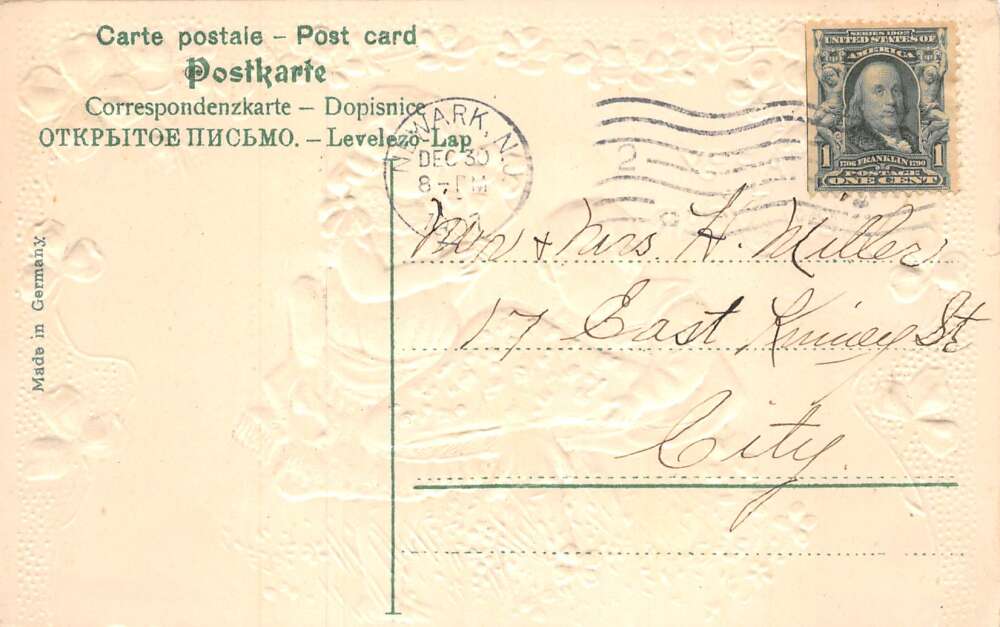 Carte postale – Post card
Postkarte
Correspondenzkarte – Dopisnice
ОТКРЫТОЕ ПИСЬМО. – Levelező-Lap
NEWARK, N.J.
DEC 30
8 – PM
2
SERIES 1902
UNITED STATES OF
AMERICA
1 1706 FRANKLIN 1790 1
POSTAGE
ONE CENT
Mr & Mrs H. Miller
17 East Kinney St
City.
Made in Germany.